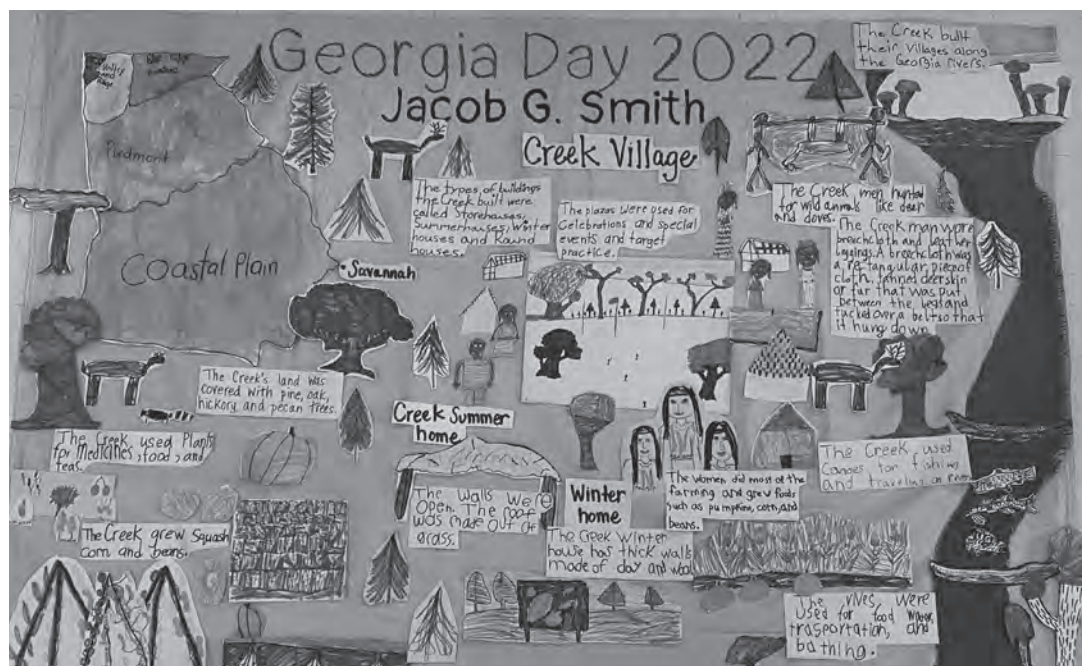 Georgia Day 2022
Jacob G. Smith
Creek Village
The Creek built
their Villages along
the Georgia rivers.
Valley
and
Ridge
Blue ridge
Piedmont
Coastal Plain
Savannah
The types of buildings
the Creek built were
called Storehouses,
Summerhouses, Winter
houses and Round
houses.
The plazas were used for
Celebrations and special
events and target
practice.
The Creek men hunted
for wild animals like deer
and doves.
The Creek man wore
breachcloth and leather
legeings. A breachcloth was
a rectangular, piece of
cloth, tanned deerskin
or fur that was put
between the legs and
tucked over a belt so that
it hung down
The Creek's land was
covered with pine, oak,
hickory and pecan trees.
The Creek used Plants
for Medicines, food, and
teas.
Creek Summer
home
The walls were
Open. The roof
was made out of
grass.
Winter
home
The Creek Winter
house has thick walls
made of clay and wood
The women did most of the
farming and grew foods
such as pumpkins, corn, and
beans.
The Creek used
Canoes for fishing
and traveling on
The Creek grew Squash
corn and beans.
The rives were
used for food water,
trasportation, and
bathing.